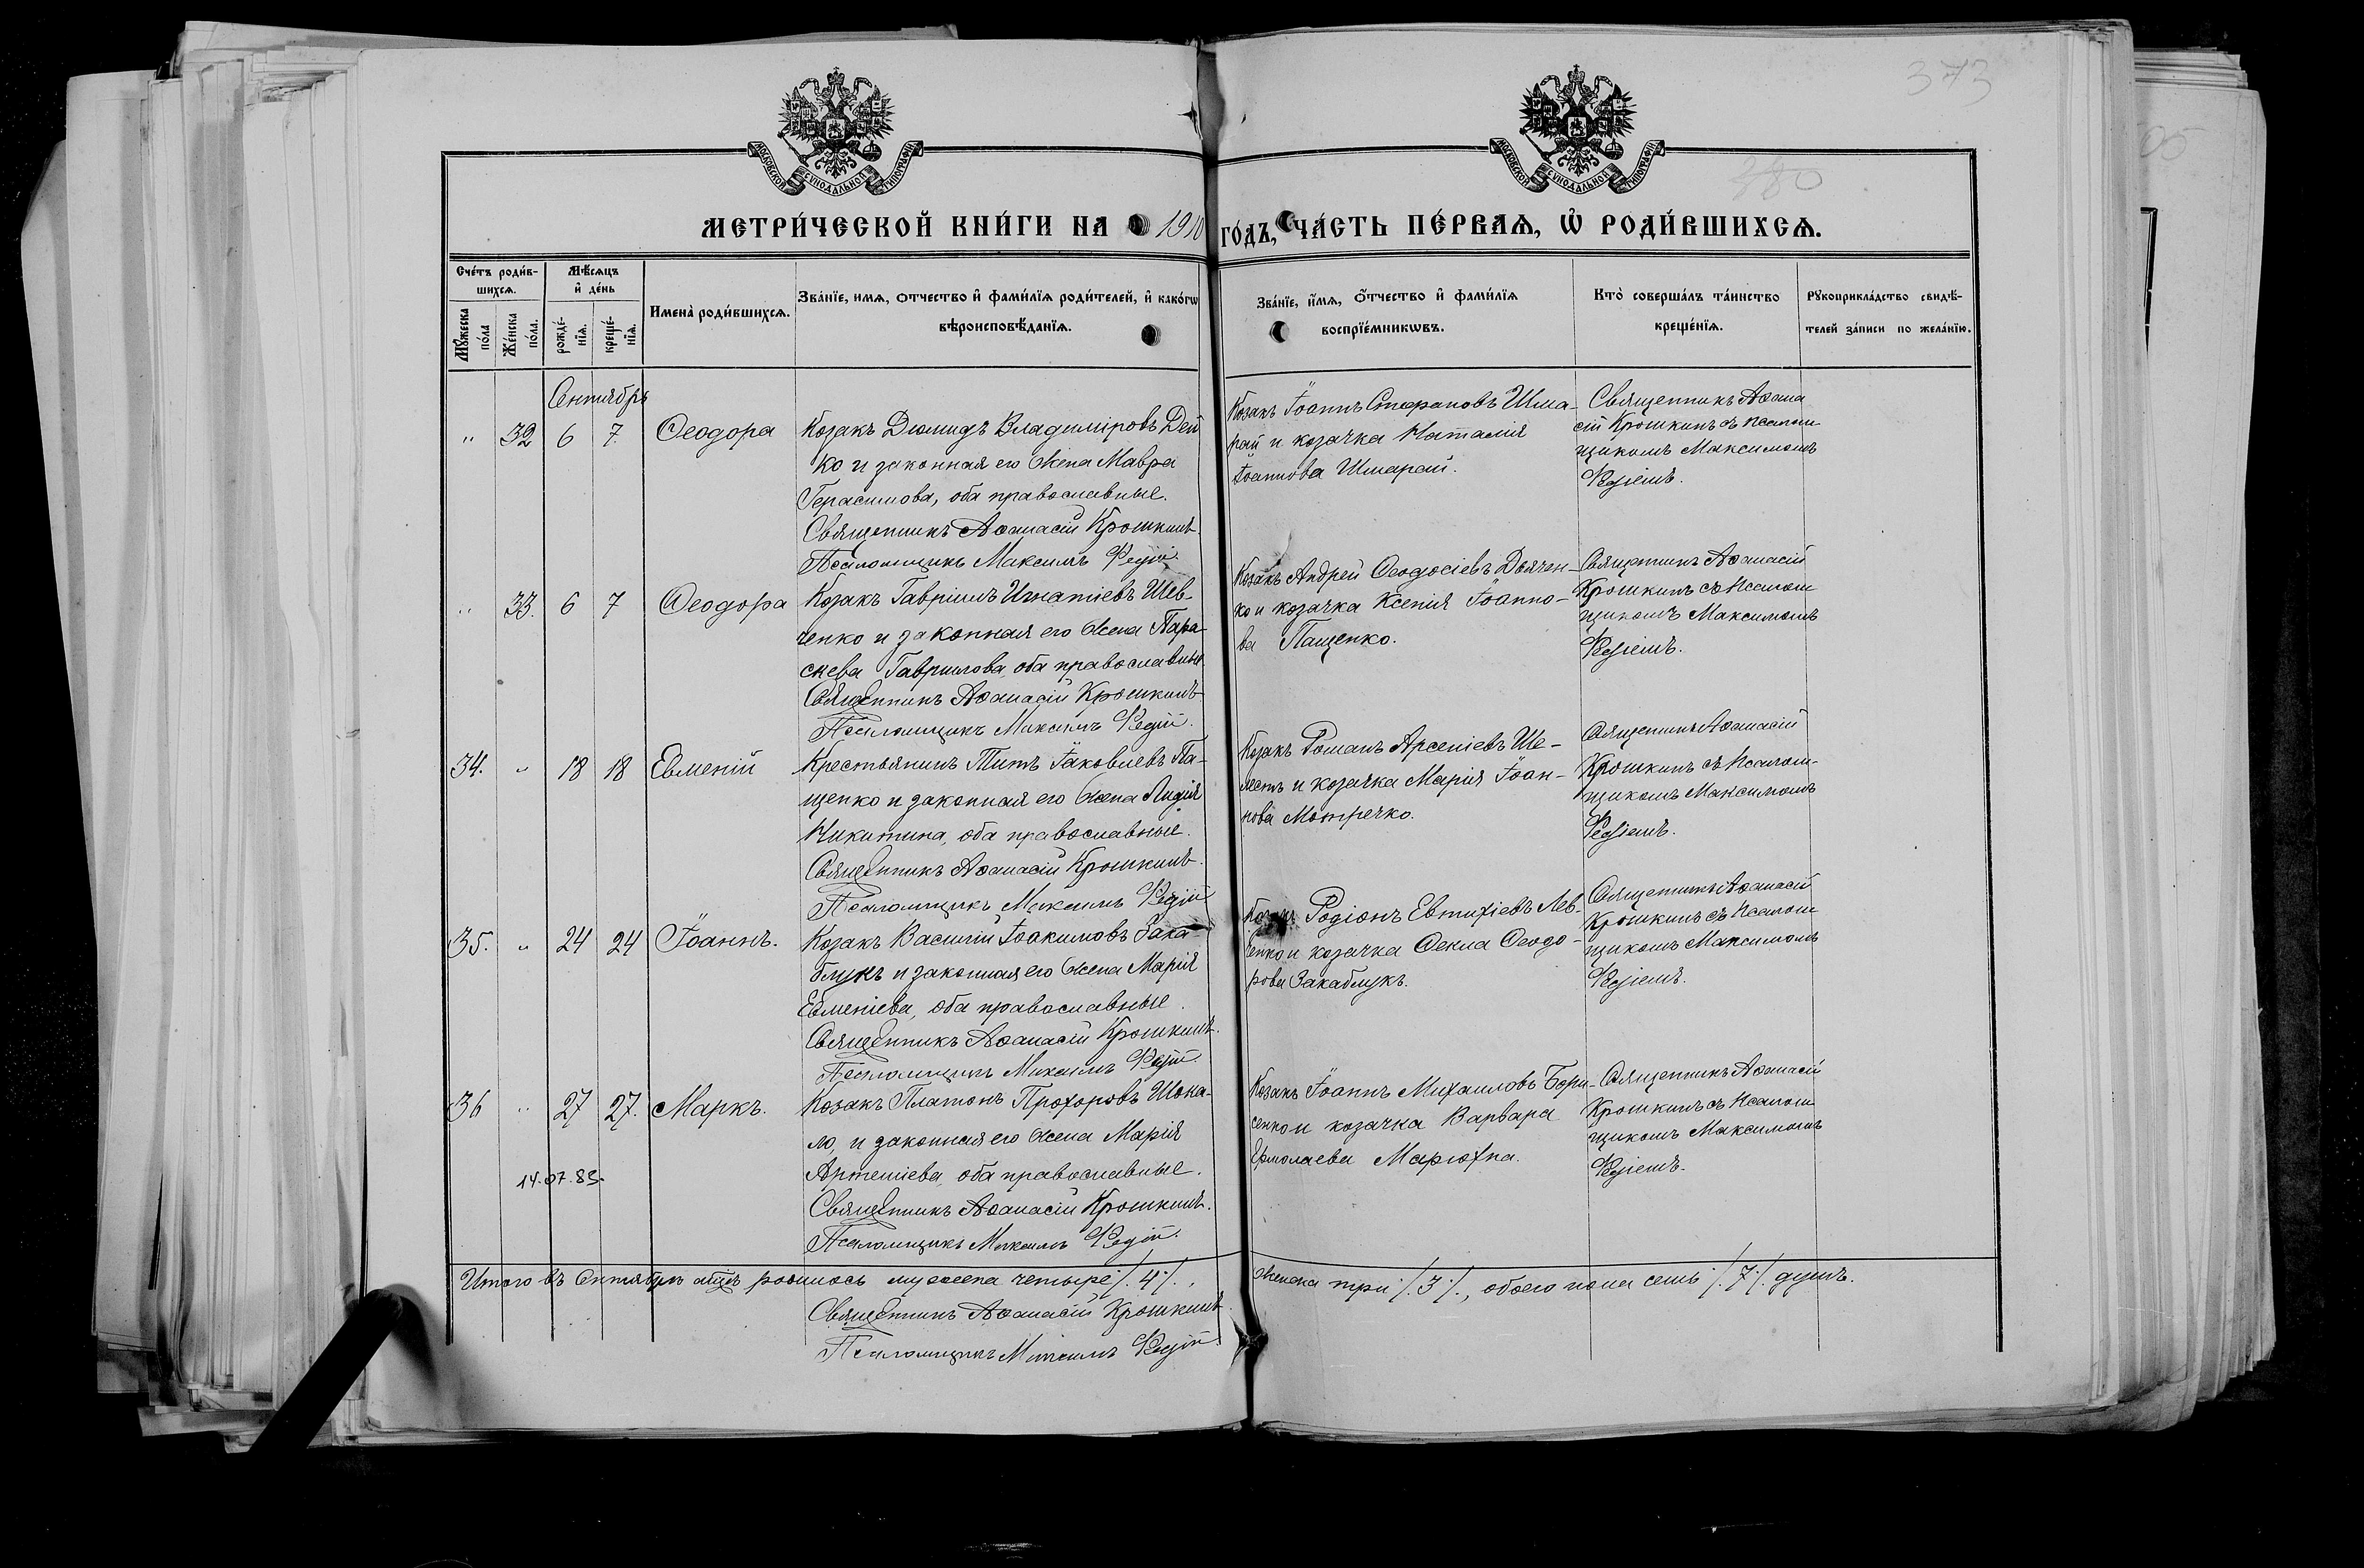 373
380
МОСКОВСКОЙ СѴНОДАЛЬНОЙ ТИПОГРАФІИ
МОСКОВСКОЙ СѴНОДАЛЬНОЙ ТИПОГРАФІИ
МЕТРИ́ЧЕСКОЙ КНИ́ГИ НА 1910 ГО́ДЪ, ЧА́СТЬ ПЕ́РВАѦ, Ѡ҆ РОДИ́ВШИХСѦ.
Сче́тъ роди́в-
шихсѧ.
Мꙋ́жеска по́ла
Же́нска по́ла.
Мѣ́сѧцъ
и҆ де́нь
рожде́-
нїѧ.
креще́-
нїѧ.
Имена̀ роди́вшихсѧ.
Зва́нїе, имѧ, отчество и҆ фами́лїѧ роди́телей, и҆ како́гѡ
вѣроисповѣ́данїѧ.
Зва́нїе, и҆́мѧ, о҆́тчество и҆ фами́лїѧ
воспрїе́мникѡвъ.
Кто̀ соверша́лъ та́инство
креще́нїѧ.
Рꙋкоприкла́дство свидѣ́-
телей за́писи по жела́нїю.
Сентябрь
" 32 6 7 Ѳеодора
Козакъ Діомидъ Владиміровъ Дей
ко и законная его жена Мавра
Герасимова, оба православные.
Священникъ Аѳанасій Крошкинъ
Псаломщикъ Максимъ Редій.
Козакъ Іоаннъ Стефановъ Шма-
рай и козачка Наталія
Іоаннова Шмарай.
Священникъ Аѳана
сій Крошкинъ съ псалом
щикомъ Максимомъ
Редіемъ.
" 33. 6 7 Ѳеодора
Козакъ Гавріилъ Игнатіевъ Шев-
ченко и законная его жена Пара-
скева Гаврилова, оба православные
Священникъ Аѳанасій Крошкинъ
Псаломщикъ Максимъ Редій.
Козакъ Андрей Ѳеодосіевъ Дьячен-
ко и козачка Ксенія Іоанно-
ва Пащенко.
Священникъ Аѳанасій
Крошкинъ съ Псалом
щикомъ Максимомъ
Редіемъ.
34. " 18 18 Евменій
Крестьянинъ Титъ Іаковлевъ Па-
щенко и законная его жена Лидія
Никитина, оба православные.
Священникъ Аѳанасій Крошкинъ.
Псаломщикъ Максимъ Редій
Козакъ Романъ Арсеніевъ Ше-
лестъ и козачка Марія Іоан-
нова Мотречко.
Священникъ Аѳанасій
Крошкинъ съ Псалом-
щикомъ Максимомъ
Редіемъ.
35. " 24 24 Іоаннъ.
Козакъ Василій Іоакимовъ Зака-
блукъ и законная его жена Марія
Евменіева, оба православные.
Священникъ Аѳанасій Крошкинъ.
Псаломщикъ Максимъ Редій.
Козакъ Родіонъ Евтихіевъ Лев-
ченко и козачка Ѳекла Ѳеодо-
рова Закаблукъ.
Священникъ Аѳанасій
Крошкинъ съ Псалом
щикомъ Максимомъ
Редіемъ.
36 " 27 27. Маркъ.
Козакъ Платонъ Прохоровъ Шока-
ло, и законная его жена Марія
Артеміева, оба православные.
Священникъ Аѳанасій Крошкинъ.
Псаломщикъ Максимъ Редій.
Козакъ Іоаннъ Михаиловъ Бори-
сенко и козачка Варвара
Ермолаева Марюхна.
Священникъ Аѳанасій
Крошкинъ съ Псалом
щикомъ Максимомъ
Редіемъ.
14.07.83.
Итого въ Сентябрѣ мѣсяцѣ родилось мужеска четыре /. 4 /., женска три /. 3 /., обоего пола семь /. 7 /. душъ.
Священникъ Аѳанасій Крошкинъ
Псаломщикъ Максимъ Редій.